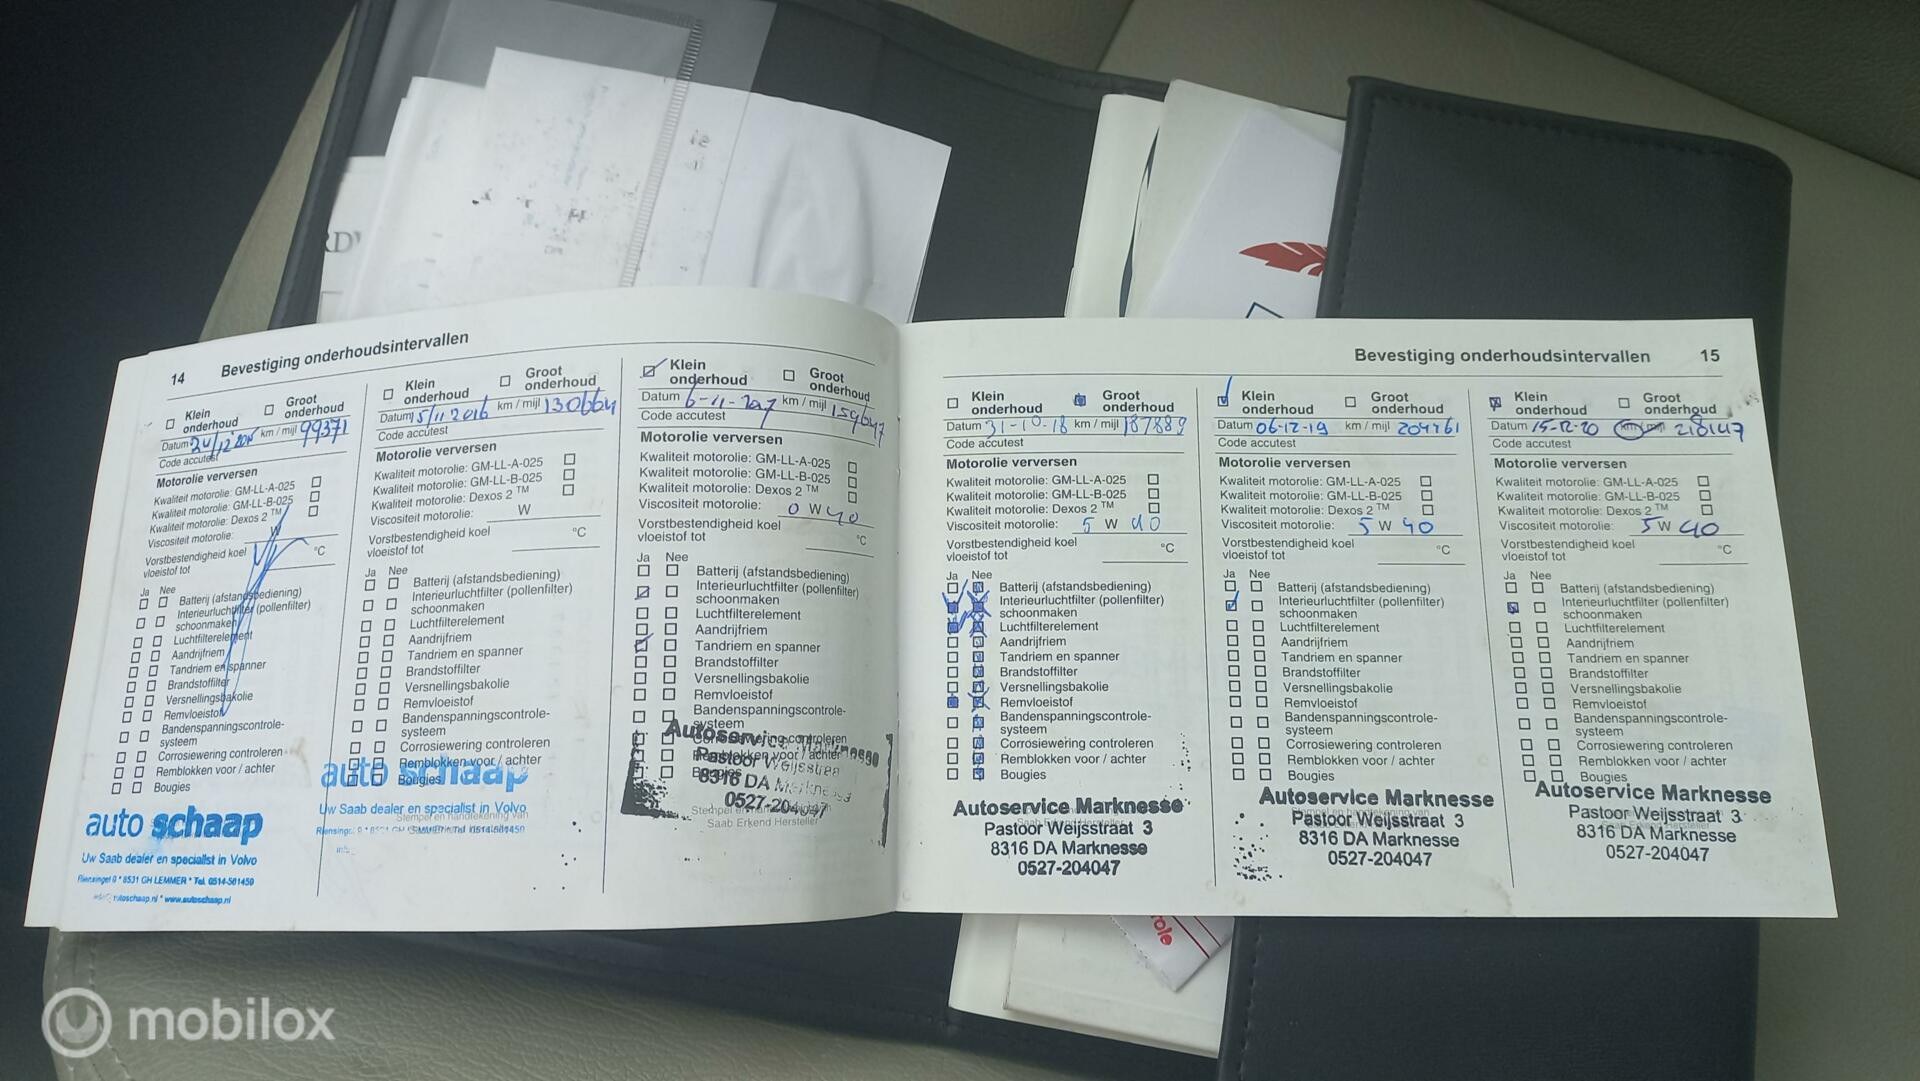 14 Bevestiging onderhoudsintervallen
Klein onderhoud Groot onderhoud
Datum 24/12 2015 km / mijl 99371
Code accutest
Motorolie verversen
Kwaliteit motorolie: GM-LL-A-025
Kwaliteit motorolie: GM-LL-B-025
Kwaliteit motorolie: Dexos 2 ™
Viscositeit motorolie: W
Vorstbestendigheid koel
vloeistof tot °C
Ja Nee
Batterij (afstandsbediening)
Interieurluchtfilter (pollenfilter)
schoonmaken
Luchtfilterelement
Aandrijfriem
Tandriem en spanner
Brandstoffilter
Versnellingsbakolie
Remvloeistof
Bandenspanningscontrole-
systeem
Corrosiewering controleren
Remblokken voor / achter
Bougies
auto schaap
Uw Saab dealer en specialist in Volvo
8531 GH LEMMER * Tel. 0514-561450
www.autoschaap.nl
Klein onderhoud Groot onderhoud
Datum 15/11 2016 km / mijl 130664
Code accutest
Motorolie verversen
Kwaliteit motorolie: GM-LL-A-025
Kwaliteit motorolie: GM-LL-B-025
Kwaliteit motorolie: Dexos 2 ™
Viscositeit motorolie: W
Vorstbestendigheid koel
vloeistof tot °C
Ja Nee
Batterij (afstandsbediening)
Interieurluchtfilter (pollenfilter)
schoonmaken
Luchtfilterelement
Aandrijfriem
Tandriem en spanner
Brandstoffilter
Versnellingsbakolie
Remvloeistof
Bandenspanningscontrole-
systeem
Corrosiewering controleren
Remblokken voor / achter
Bougies
auto schaap
Uw Saab dealer en specialist in Volvo
Stempel en handtekening van
Klein onderhoud Groot onderhoud
Datum 6-11-2017 km / mijl 159647
Code accutest
Motorolie verversen
Kwaliteit motorolie: GM-LL-A-025
Kwaliteit motorolie: GM-LL-B-025
Kwaliteit motorolie: Dexos 2 ™
Viscositeit motorolie: 0 W 40
Vorstbestendigheid koel
vloeistof tot °C
Ja Nee
Batterij (afstandsbediening)
Interieurluchtfilter (pollenfilter)
schoonmaken
Luchtfilterelement
Aandrijfriem
Tandriem en spanner
Brandstoffilter
Versnellingsbakolie
Remvloeistof
Bandenspanningscontrole-
systeem
Corrosiewering controleren
Remblokken voor / achter
Bougies
Autoservice Marknesse
Pastoor Weijsstraat
8316 DA Marknesse
0527-204047
Saab Erkend Hersteller
Bevestiging onderhoudsintervallen 15
Klein onderhoud Groot onderhoud
Datum 31-10-18 km / mijl 187889
Code accutest
Motorolie verversen
Kwaliteit motorolie: GM-LL-A-025
Kwaliteit motorolie: GM-LL-B-025
Kwaliteit motorolie: Dexos 2 ™
Viscositeit motorolie: 5 W 40
Vorstbestendigheid koel
vloeistof tot °C
Ja Nee
Batterij (afstandsbediening)
Interieurluchtfilter (pollenfilter)
schoonmaken
Luchtfilterelement
Aandrijfriem
Tandriem en spanner
Brandstoffilter
Versnellingsbakolie
Remvloeistof
Bandenspanningscontrole-
systeem
Corrosiewering controleren
Remblokken voor / achter
Bougies
Autoservice Marknesse
Pastoor Weijsstraat 3
8316 DA Marknesse
0527-204047
Klein onderhoud Groot onderhoud
Datum 06-12-19 km / mijl 204461
Code accutest
Motorolie verversen
Kwaliteit motorolie: GM-LL-A-025
Kwaliteit motorolie: GM-LL-B-025
Kwaliteit motorolie: Dexos 2 ™
Viscositeit motorolie: 5 W 40
Vorstbestendigheid koel
vloeistof tot °C
Ja Nee
Batterij (afstandsbediening)
Interieurluchtfilter (pollenfilter)
schoonmaken
Luchtfilterelement
Aandrijfriem
Tandriem en spanner
Brandstoffilter
Versnellingsbakolie
Remvloeistof
Bandenspanningscontrole-
systeem
Corrosiewering controleren
Remblokken voor / achter
Bougies
Autoservice Marknesse
Pastoor Weijsstraat 3
8316 DA Marknesse
0527-204047
Klein onderhoud Groot onderhoud
Datum 15-12-20 km / mijl 218147
Code accutest
Motorolie verversen
Kwaliteit motorolie: GM-LL-A-025
Kwaliteit motorolie: GM-LL-B-025
Kwaliteit motorolie: Dexos 2 ™
Viscositeit motorolie: 5 W 40
Vorstbestendigheid koel
vloeistof tot °C
Ja Nee
Batterij (afstandsbediening)
Interieurluchtfilter (pollenfilter)
schoonmaken
Luchtfilterelement
Aandrijfriem
Tandriem en spanner
Brandstoffilter
Versnellingsbakolie
Remvloeistof
Bandenspanningscontrole-
systeem
Corrosiewering controleren
Remblokken voor / achter
Bougies
Autoservice Marknesse
Pastoor Weijsstraat 3
8316 DA Marknesse
0527-204047
mobilox